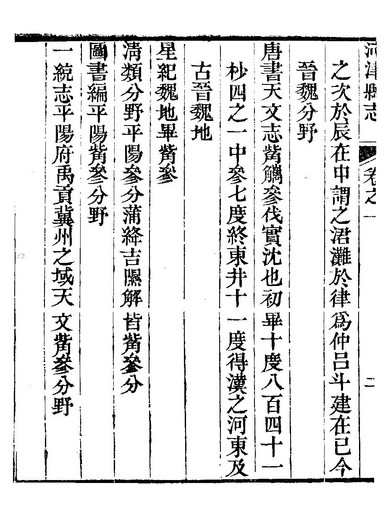 河津縣志
卷之一
二
之次於辰在申謂之涒灘於律爲仲呂斗建在巳今
晉魏分野
唐書天文志觜觿參伐實沈也初畢十度八百四十一
杪四之一中參七度終東井十一度得漢之河東及
古晉魏地
星紀魏地畢觜參
清類分野平陽參分蒲絳吉隰解皆觜參分
圖書編平陽觜參分野
一統志平陽府禹貢冀州之域天文觜參分野